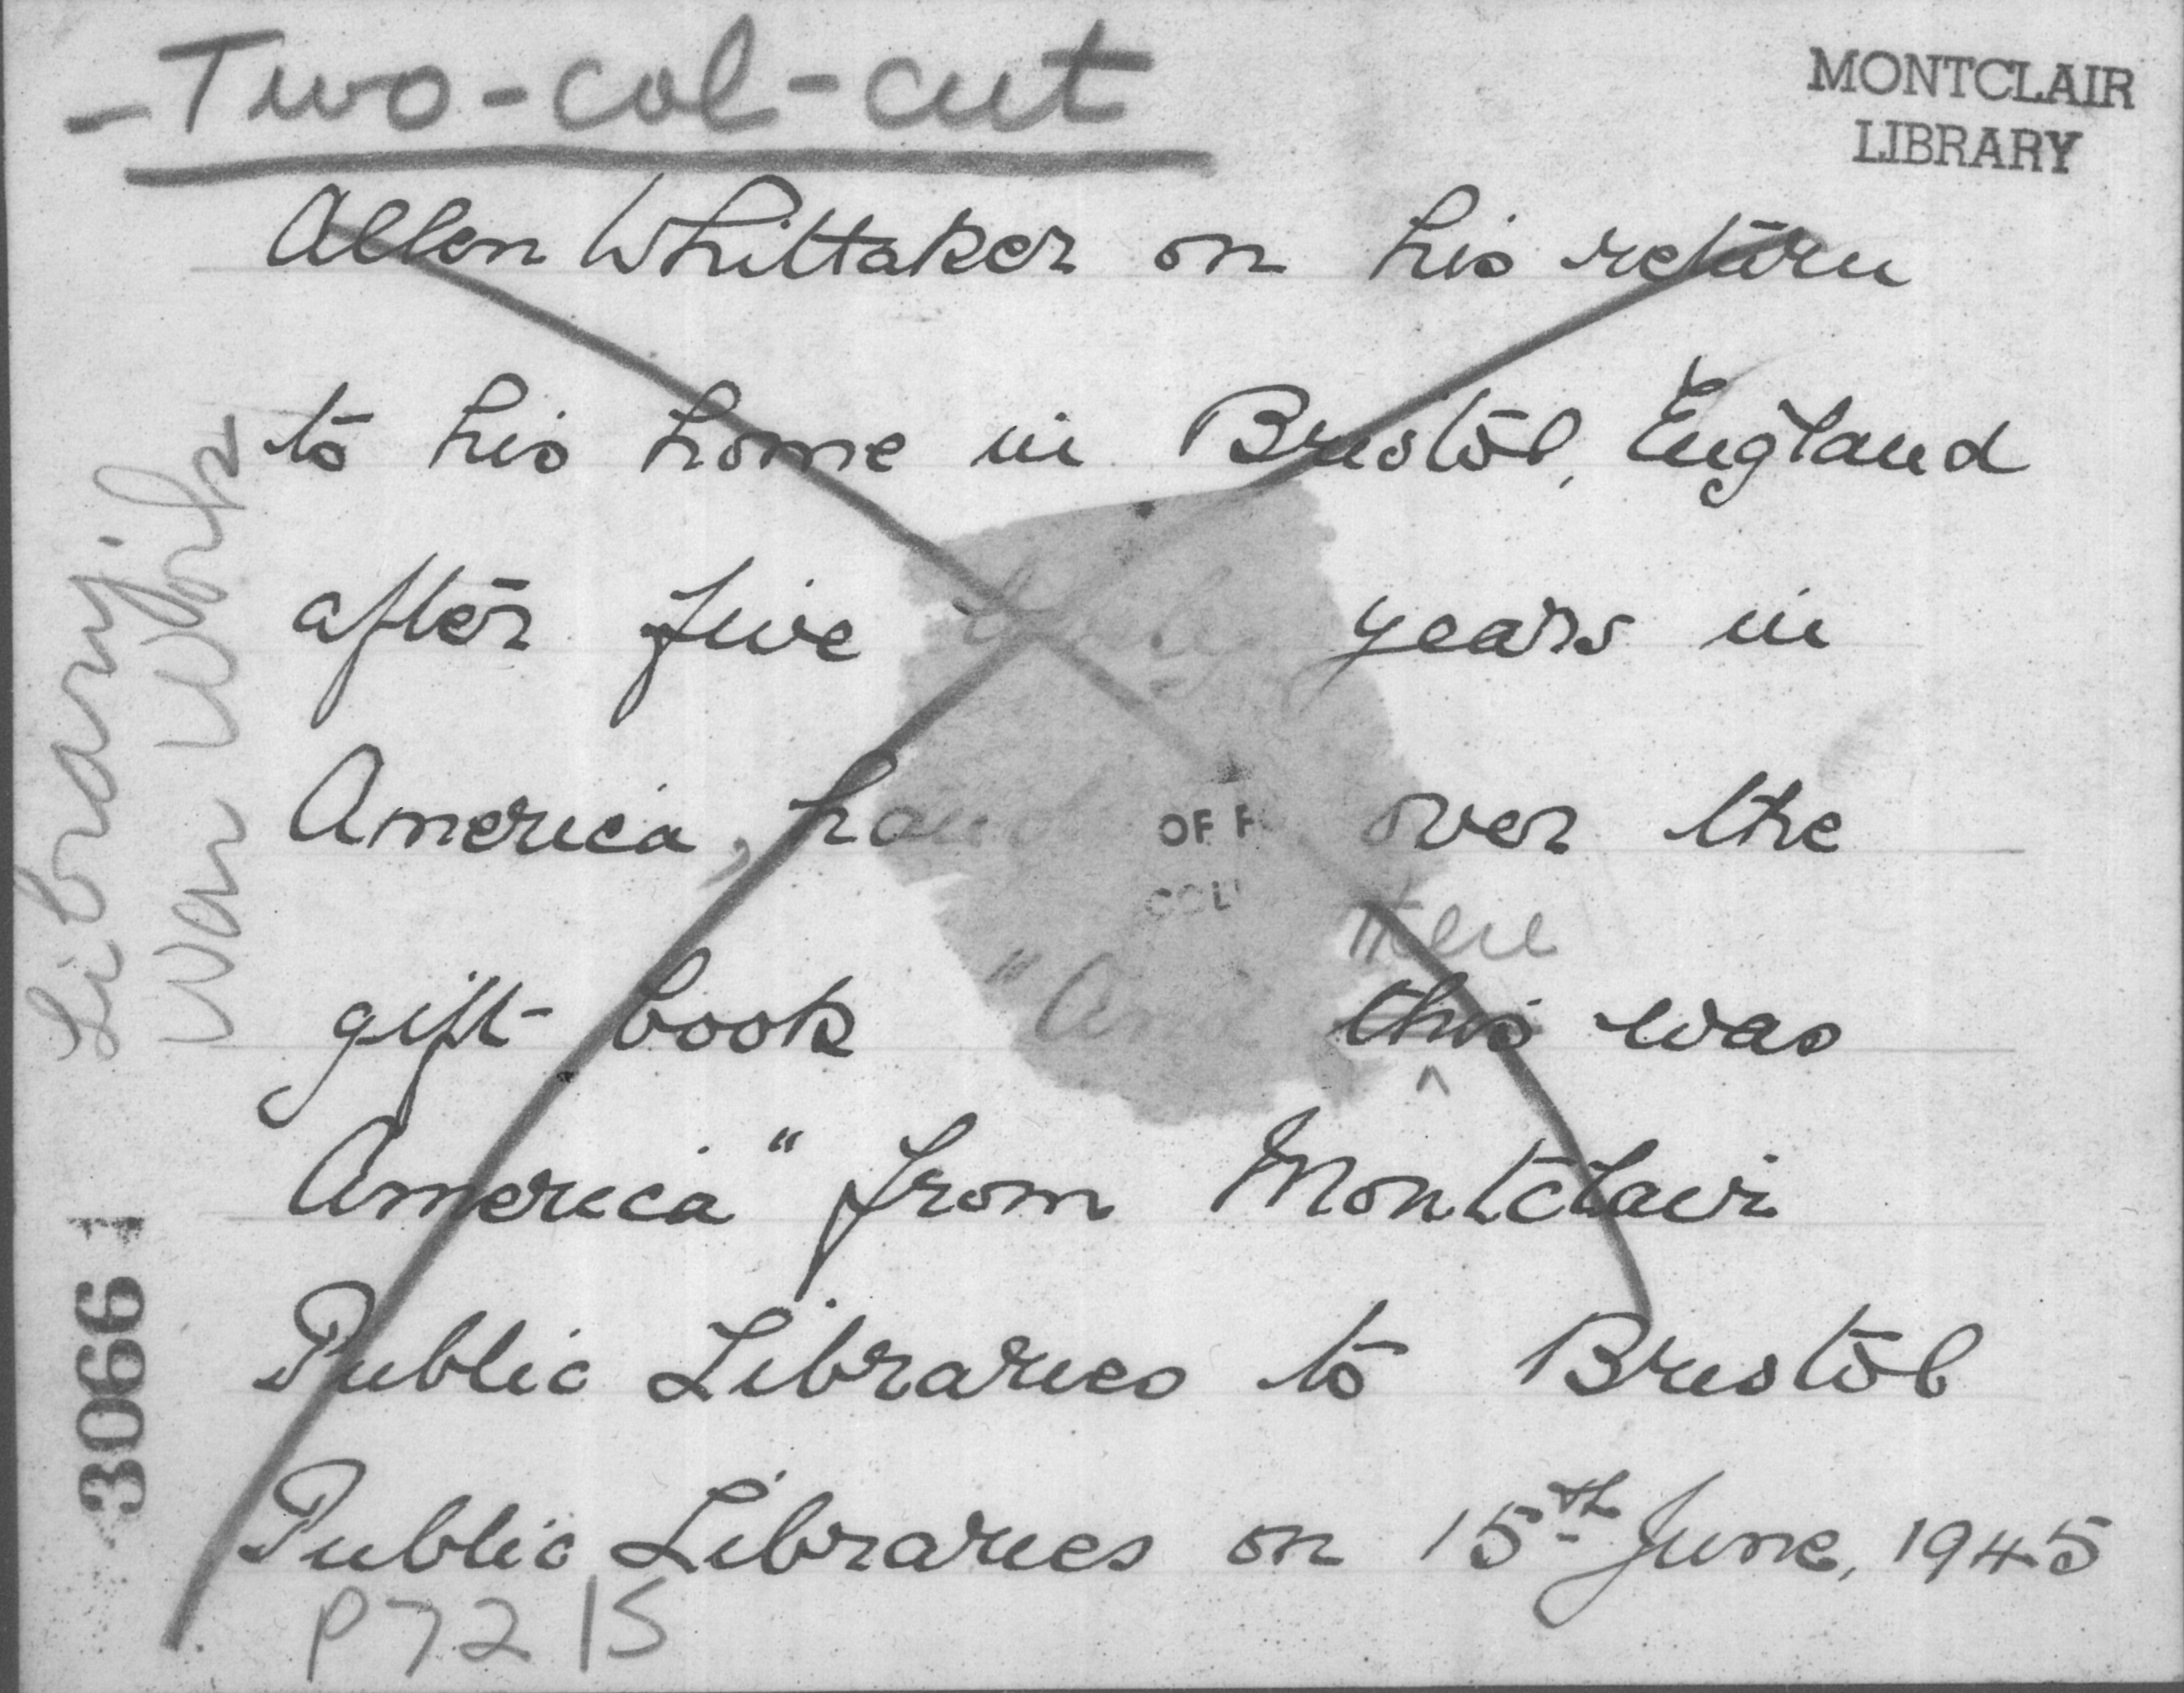 - Two-col-cut
MONTCLAIR
LIBRARY
Allen Whittaker on his return
to his home in Bristol, England
after five years in
America, over the
OF
there
gift book "And this was
America" from Montclair
Public Libraries to Bristol
Public Libraries on 15th June, 1945
P7215
Library;
War Work
3066 1